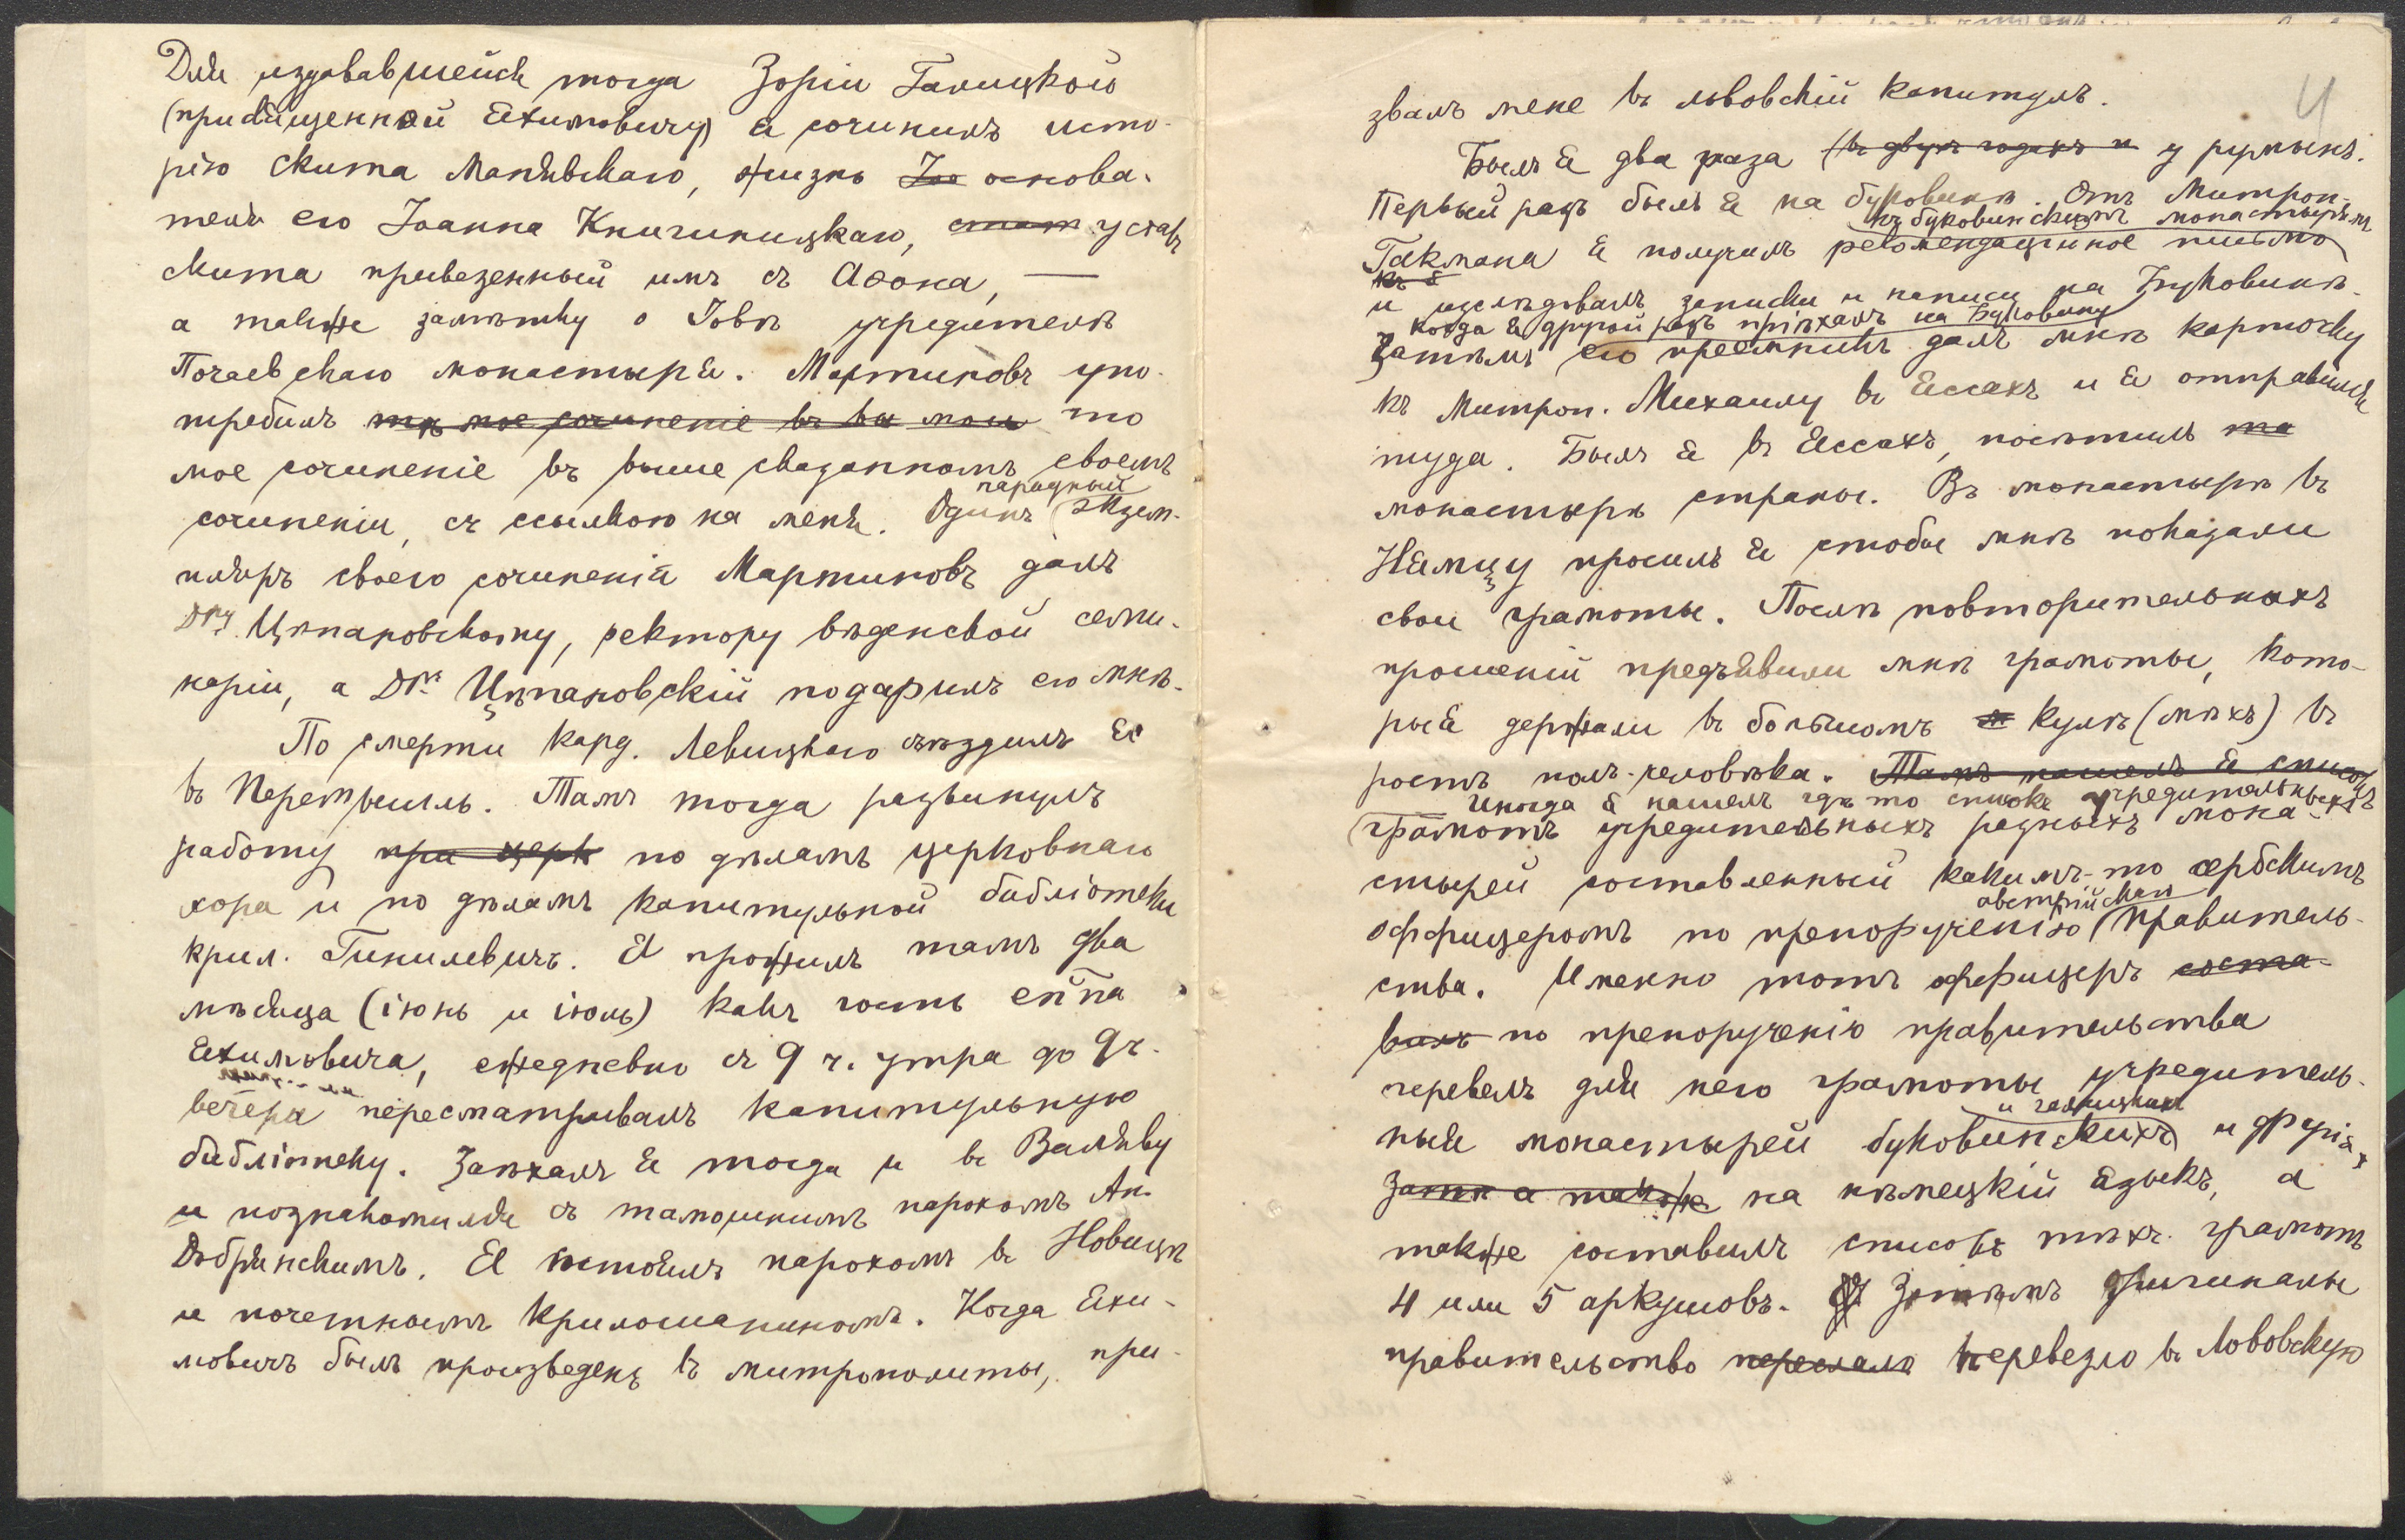 Для издававшейся тогда Зоріи Галицкою
(присвященной Яхимовичу) я сочинилъ исто-
рію скита Манявскаго, жизнь Іоа основа-
теля его Іоанна Княгиницкаго, стат уставъ
скита привезенный имъ съ Аѳона, —
а также замѣтку о Іовѣ учредителѣ
Почаевскаго монастыря. Мартиновъ упо-
требилъ тк мое сочиненіе въ вы мои то
мое сочиненіе въ выше сказанномъ своемъ
сочиненіи, съ ссылкою на меня. Одинъ парадный экзем-
пляръ своего сочиненія Мартиновъ далъ
Дру. Цѣпановскому, ректору вѣденской семи-
наріи, а Дръ Цѣпановскій подарилъ его мнѣ.
По смерти кард. Левицкаго съѣздилъ я
въ Перемышль. Тамъ тогда развинулъ
работу при церк по дѣламъ церковнаго
хора и по дѣламъ капитульной библіотеки
крил. Гинилевичъ. Я прожилъ тамъ два
мѣсяца (іюнь и іюль) какъ гость еп̃па
Яхимовича, ежедневно съ 9 ч. утра до 9 ч.
вечера пересматривалъ капитульную
библіотеку. Заѣхалъ я тогда и въ Валяву
и познакомился съ тамошнимъ парохомъ Ан.
Добрянскимъ. Я состоялъ парохомъ въ Новицѣ
и почетнымъ крилошаниномъ. Когда Яхи-
мовичъ былъ произведенъ въ митрополиты, при-
4
звалъ мене въ львовскій капитулъ.
Былъ я два раза (въ двухъ годахъ и у румынъ.
Первый разъ былъ я на буковинѣ. Отъ Митроп.
къ буковинскимъ монастырямъ
Гакмана я получилъ рекомендаційное письмо
къ б
и изслѣдовалъ записки и написи на Буковинѣ.
когда я другой разъ пріѣхалъ на Буковину
Затѣмъ его преемникъ далъ мнѣ карточку
къ Митроп. Михаилу въ Яссахъ и я отправился
туда. Былъ я въ Яссахъ, посѣтилъ та
монастырѣ страны. Въ монастырѣ въ
Нямцу просилъ я стобы мнѣ показали
свои грамоты. Послѣ повторительныхъ
прошеній предъявили мнѣ грамоты, кото-
рыя держали въ большомъ м кулѣ (мѣхъ) въ
ростъ полъ-человѣка. Тамъ нашелъ я списокъ
Иногда я нашелъ гдѣ то списокъ учредительныхъ
(грамотъ учредительныхъ разныхъ мона-
стырей составленный какимъ-то сербскимъ
оффицеромъ по препорученію австрійскаго правитель-
ства. Именно тотъ оффицеръ соста-
вилъ по препорученію правительства
перевелъ для него грамоты учредитель-
ныя монастырей буковинскихъ и галицкихъ и другія
затѣ а также на нѣмецкій языкъ, а
также составилъ списокъ тѣхъ грамотъ
4 или 5 аркушовъ. Затѣмъ оригиналы
правительство переслало перевезло въ Львовскую